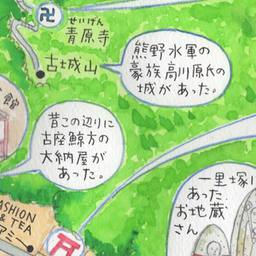 せいげん
青原寺
古城山
熊野水軍の
豪族高川原氏の
城があった。
館
昔この辺りに
古座鯨方の
大納屋が
あった。
一里塚に
あった
お地蔵
さん
FASHION
& TEA
アミー